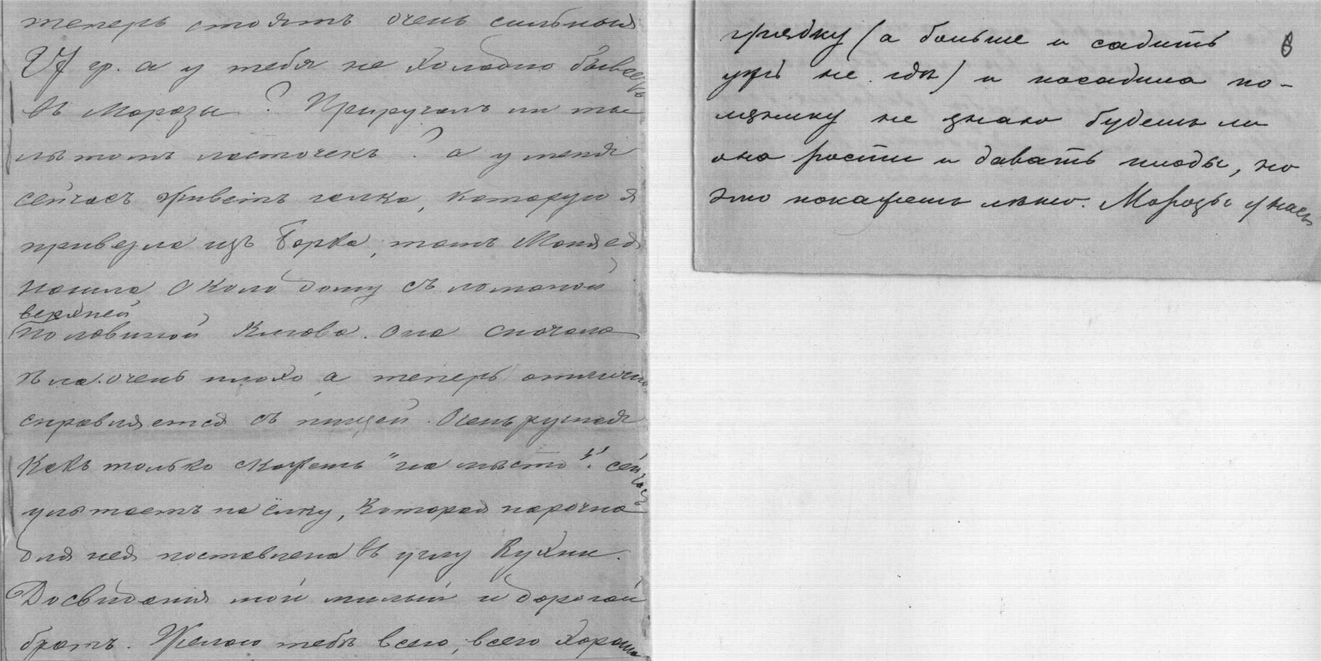 теперь стоятъ очень сильныя
гр. а у тебя не холодно бываетъ
въ морозы? Приручалъ ли ты
лѣтомъ ласточекъ? а у меня
сейчасъ живетъ галка, которую я
привезла изъ Борка, тамъ Маня ея
нашла около дому съ ломаной
верхней
половиной клюва. она сначала
ѣла очень плохо а теперь отлично
справляется съ пищей. Очень ручная
Какъ только скажешь "на мѣсто"! сейчасъ
улѣтаетъ на ёлку, которая нарочно
для нея поставлена въ углу кухни.
Досвиданiя мой милый и дорогой
братъ. Желаю тебѣ всего, всего хорош
6
грядку (а больше и садить
ужъ не гдѣ) и посадила по-
ленику не знаю будетъ ли
она рости и давать плоды, но
это покажетъ лѣто. Морозы у насъ